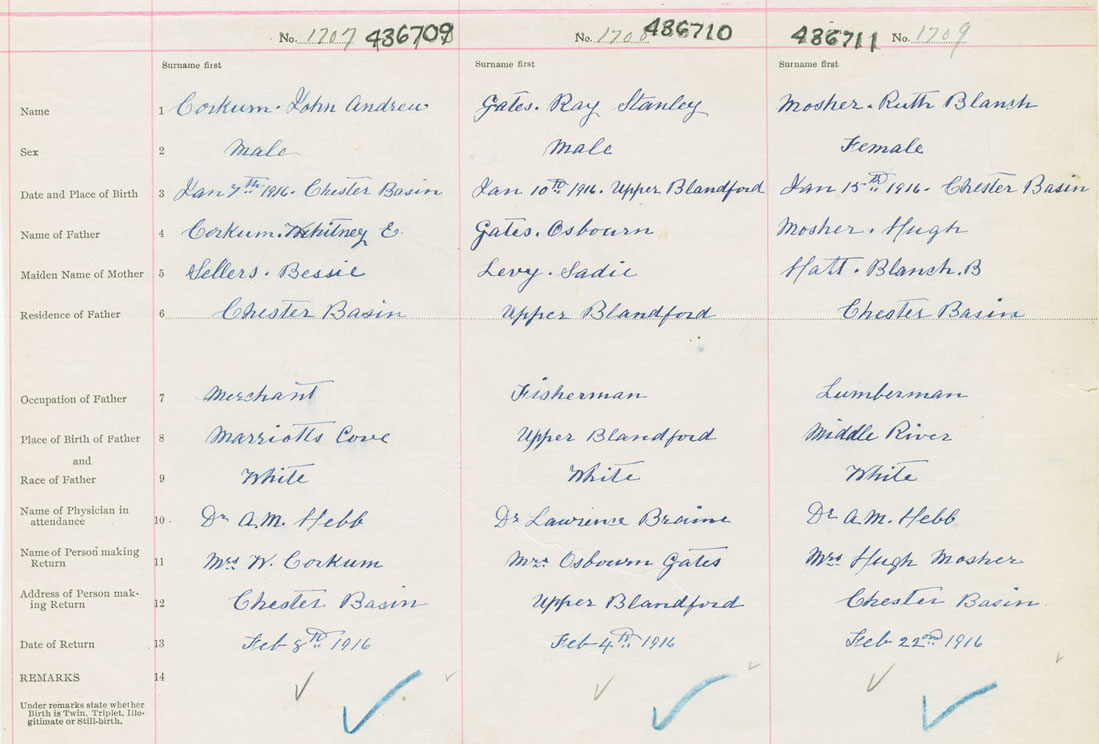 No. 1707 436709 No. 1708 436710 436711 No. 1709
Surname first Surname first Surname first
Name 1 Corkum. John Andrew Gates. Ray Stanley Mosher. Ruth Blanch
Sex 2 Male Male Female
Date and Place of Birth 3 Jan 7th 1916. Chester Basin Jan 10th 1916. Upper Blandford Jan 15th 1916. Chester Basin
Name of Father 4 Corkum. Whitney E. Gates. Osbourn Mosher. Hugh
Maiden Name of Mother 5 Sellers. Bessie Levy. Sadie Hatt. Blanch. B
Residence of Father 6 Chester Basin Upper Blandford Chester Basin
Occupation of Father 7 Merchant Fisherman Lumberman
Place of Birth of Father 8 Marriotts Cove Upper Blandford Middle River
and
Race of Father 9 White White White
Name of Physician in
attendance 10 Dr A.M. Hebb Dr Lawrence Braine Dr A.M. Hebb
Name of Person making
Return 11 Mrs W. Corkum Mrs Osbourn Gates Mrs Hugh Mosher
Address of Person mak-
ing Return 12 Chester Basin Upper Blandford Chester Basin
Date of Return 13 Feb 8th 1916 Feb 4th 1916 Feb 22nd 1916
REMARKS 14
Under remarks state whether
Birth is Twin, Triplet, Ille-
gitimate or Still-birth.